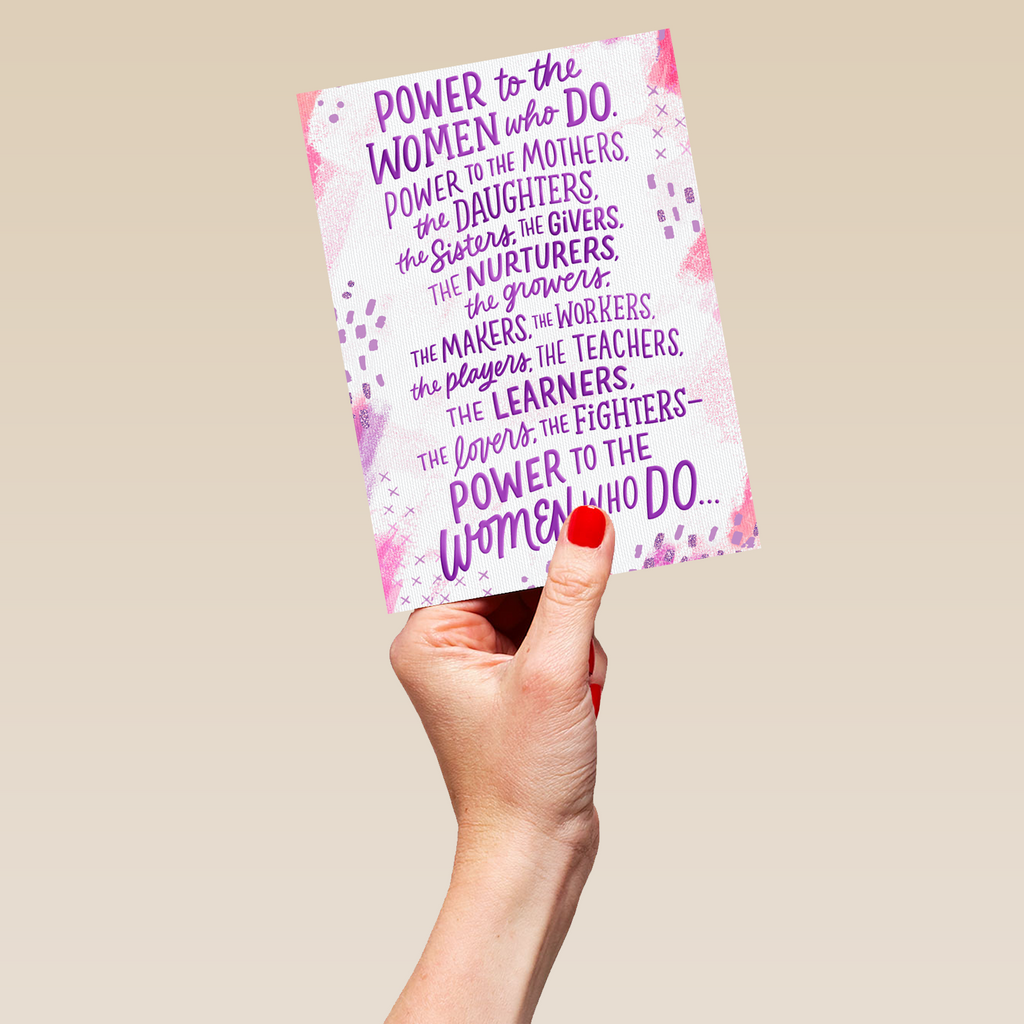 POWER to the
WOMEN who DO.
POWER TO THE MOTHERS,
the DAUGHTERS,
the Sisters, THE GiVERS,
THE NURTURERS,
the growers,
THE MAKERS, THE WORKERS,
the players, THE TEACHERS,
THE LEARNERS,
THE lovers, THE FiGHTERS—
POWER TO THE
WOMEN WHO DO...